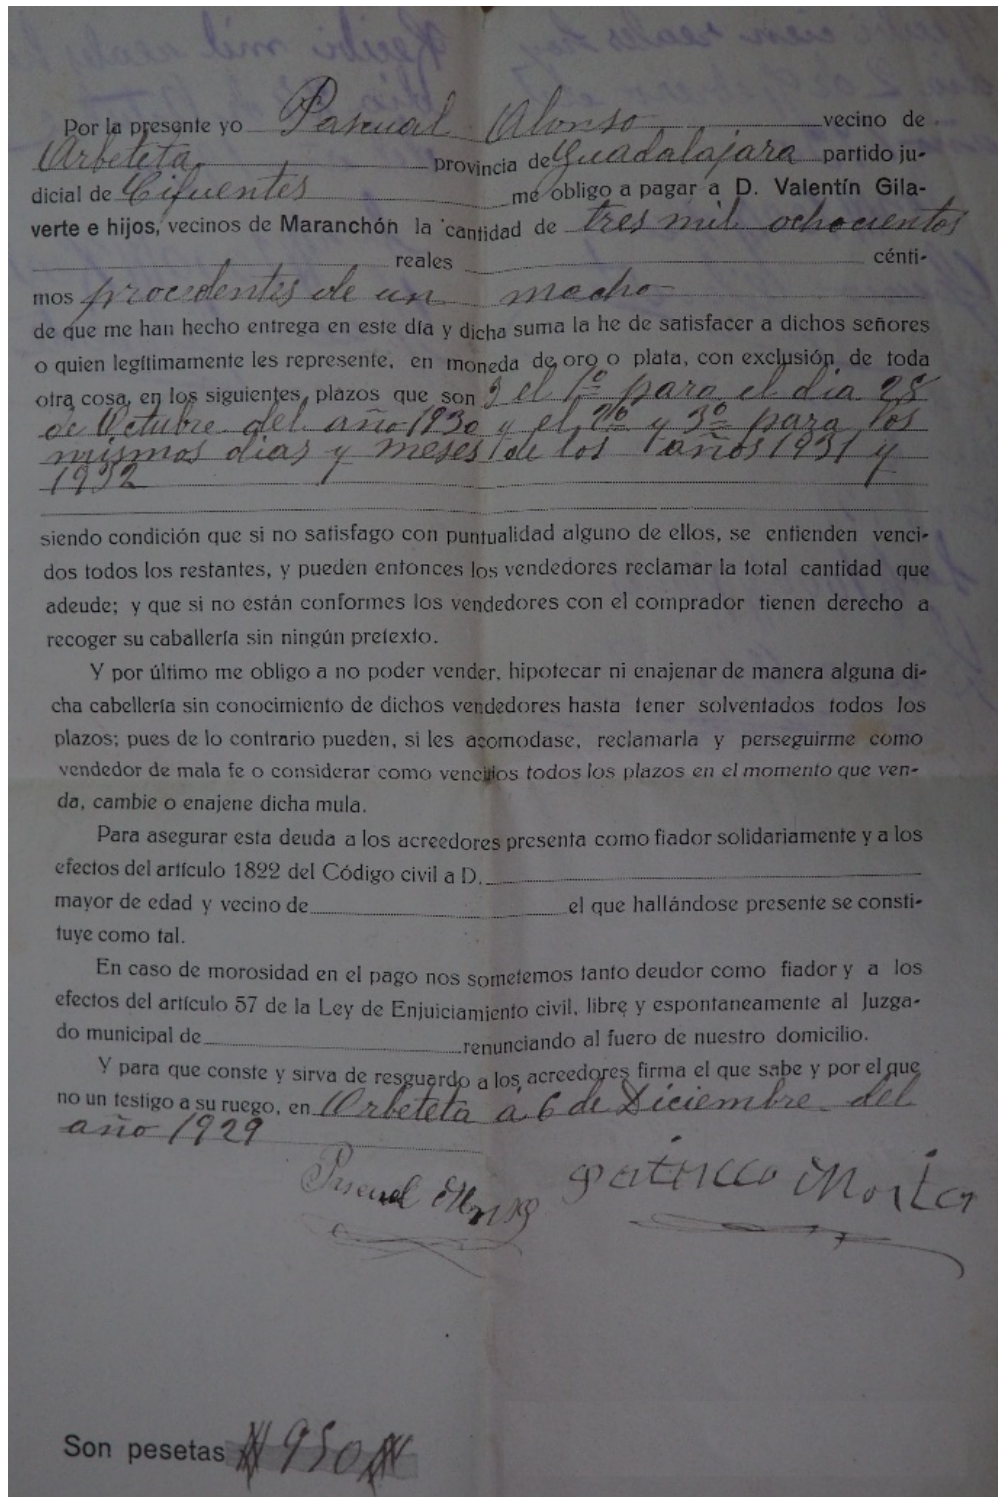 Por la presente yo Pascual Alonso vecino de
Arbeteta provincia de Guadalajara partido ju-
dicial de Cifuentes me obligo a pagar a D. Valentín Gila-
verte e hijos, vecinos de Maranchón la cantidad de tres mil ochocientos
reales cénti-
mos procedentes de un macho
de que me han hecho entrega en este día y dicha suma la he de satisfacer a dichos señores
o quien legítimamente les represente, en moneda de oro o plata, con exclusión de toda
otra cosa, en los siguientes plazos que son 3 el 1º para el dia 28
de Octubre del año 1930 y el 2º y 3º para los
mismos dias y meses de los años 1931 y
1932
siendo condición que si no satisfago con puntualidad alguno de ellos, se entienden venci-
dos todos los restantes, y pueden entonces los vendedores reclamar la total cantidad que
adeude; y que si no están conformes los vendedores con el comprador tienen derecho a
recoger su caballería sin ningún pretexto.
Y por último me obligo a no poder vender, hipotecar ni enajenar de manera alguna di-
cha cabellería sin conocimiento de dichos vendedores hasta tener solventados todos los
plazos; pues de lo contrario pueden, si les acomodase, reclamarla y perseguirme como
vendedor de mala fe o considerar como vencidos todos los plazos en el momento que ven-
da, cambie o enajene dicha mula.
Para asegurar esta deuda a los acreedores presenta como fiador solidariamente y a los
efectos del artículo 1822 del Código civil a D.
mayor de edad y vecino de el que hallándose presente se consti-
tuye como tal.
En caso de morosidad en el pago nos sometemos tanto deudor como fiador y a los
efectos del artículo 57 de la Ley de Enjuiciamiento civil, libre y espontaneamente al Juzga-
do municipal de renunciando al fuero de nuestro domicilio.
Y para que conste y sirva de resguardo a los acreedores firma el que sabe y por el que
no un testigo a su ruego, en Arbeteta á 6 de Diciembre del
año 1929
Pascual Alonso
Son pesetas 950